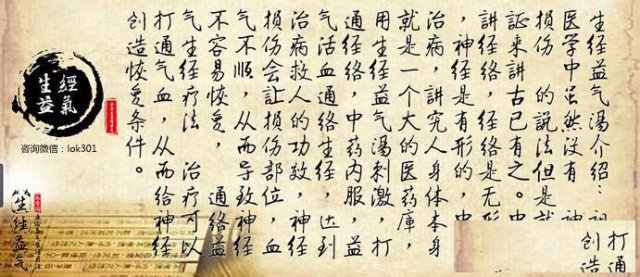 生经益气汤介绍:祖
医学中虽然没有 神
损伤 的说法但是就
证来讲古已有之。中
讲经络 经络是无形
,神经是有形的,中
治病,讲究人身体本身
就是一个大的医药库,
用生经益气汤刺激,打
通经络,中药内服,益
气活血通络生经,达到
治病救人的功效,神经
损伤会让损伤部位,血
气不顺,从而导致神经
不容易恢复, 通络益
气生经疗法 治疗可以
打通气血,从而给神经
创造恢复条件。
打通
创造
生經
益氣
咨询微信:lok301
生经益气